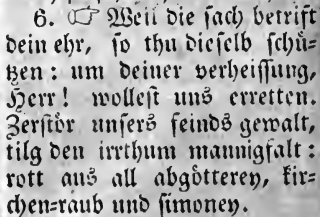 6. ☞ Weil die sach betrift
dein ehr, so thu dieselb schü⸗
tzen : um deiner verheissung,
Herr! wollest uns erretten.
Zerstör unsers feinds gewalt,
tilg den irrthum mannigfalt:
rott aus all abgötterey, kir⸗
chen⸗raub und simoney.